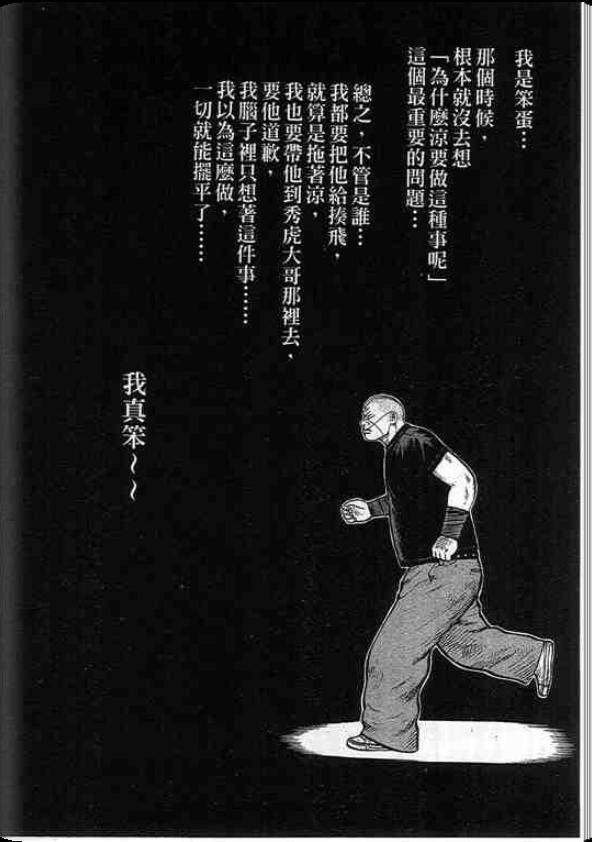 我是笨蛋…
那個時候，
根本就沒去想
「為什麼涼要做這種事呢」
這個最重要的問題…
總之，不管是誰…
我都要把他給揍飛，
就算是拖著涼，
我也要帶他到秀虎大哥那裡去，
要他道歉，
我腦子裡只想著這件事……
我以為這麼做，
一切就能擺平了……
我真笨～～